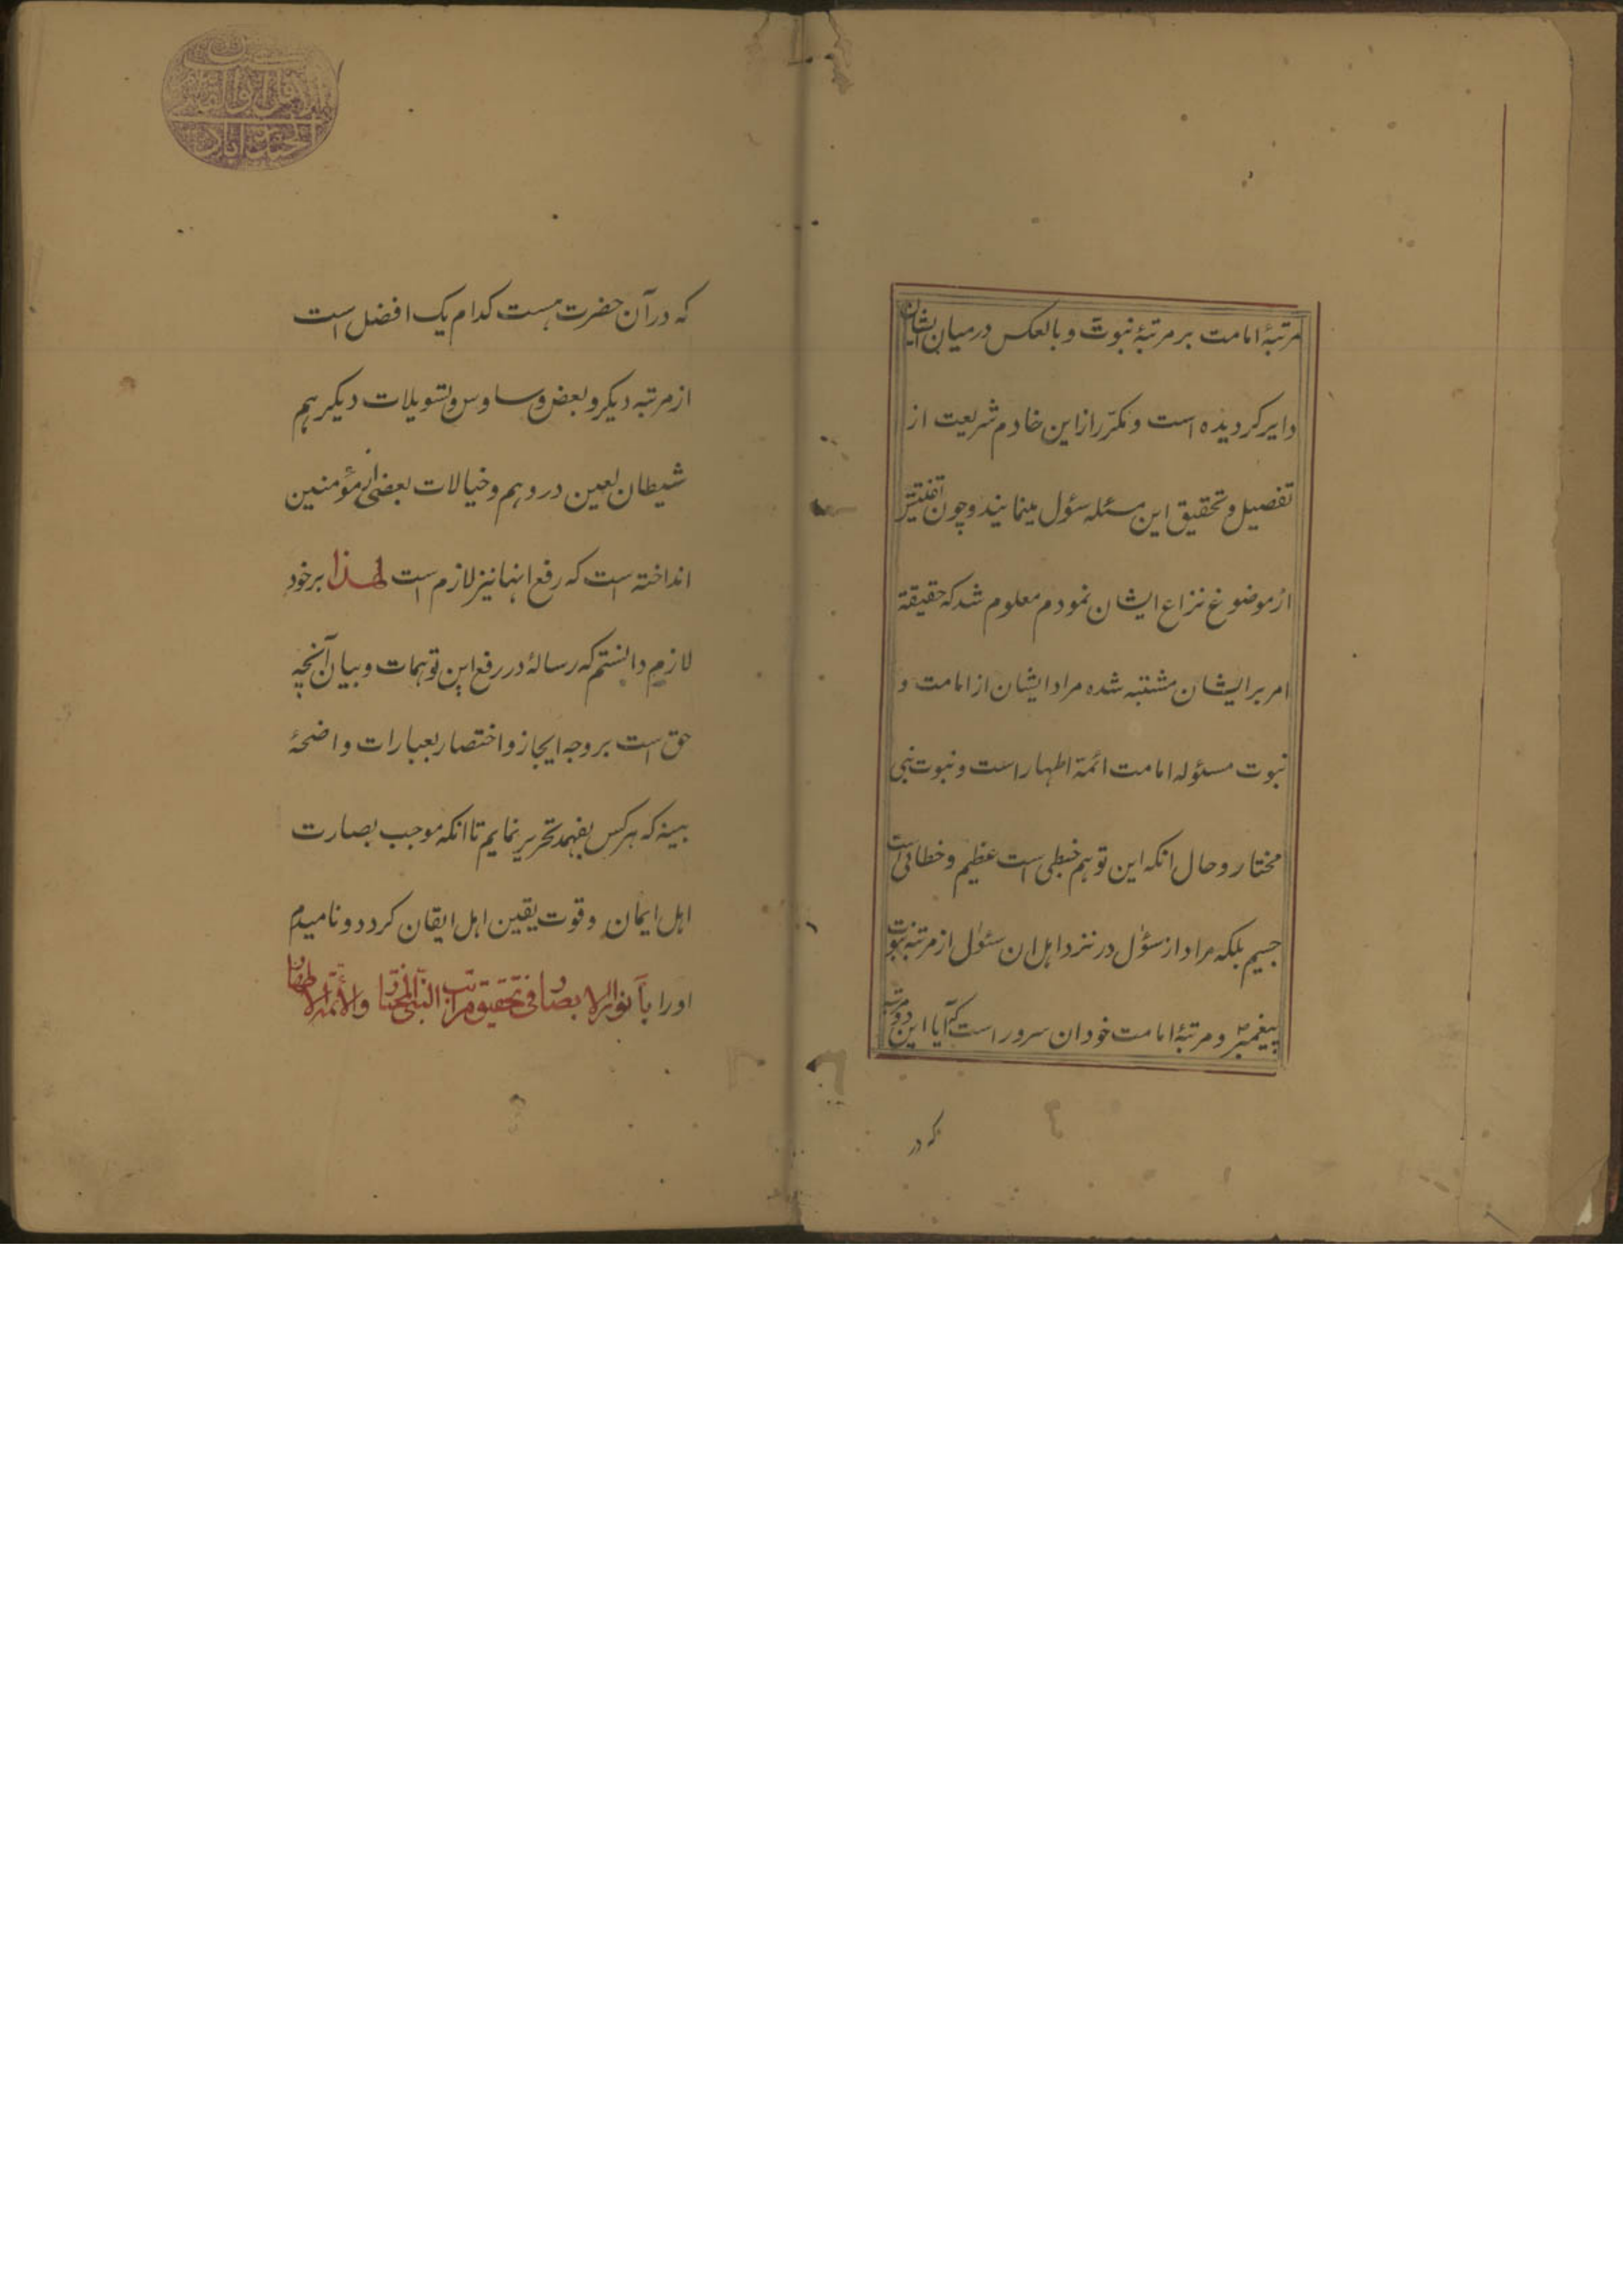 مرتبهٔ امامت بر مرتبهٔ نبوت و بالعکس درمیان ایشان
دایر کردیده است و مکرّر از این خادم شریعت از
تفصیل و تحقیق این مسئله سئول مینمایند و چون تفتیش
از موضوع نزاع ایشان نمودم معلوم شد که حقیقة
امر بر ایشان مشتبه شده مراد ایشان از امامت و
نبوت مسئوله امامت ائمة اطهار است و نبوت نبی
مختار و حال انکه این توهم خبطی است عظیم و خطائی است
جسیم بلکه مراد از سؤل در نزد اهل ان سئول از مرتبه نبوت
پیغمبر و مرتبهٔ امامت خود ان سرور است که آیا این دو مرتبه
که در
که در آن حضرت هست کدام یک افضل است
از مرتبه دیکر و بعض وساوس و تسویلات دیکر هم
شیطان لعین در وهم و خیالات بعضی از مؤمنین
انداخته است که رفع انها نیز لازم است لهذا بر خود
لازم دانستم که رسالهٔ در رفع این توهمات و بیان آنچه
حق است بر وجه ایجاز و اختصار بعبارات واضحهٔ
بینه که هر کس بفهمد تحریر نمایم تا انکه موجب بصارت
اهل ایمان و قوت یقین اهل ایقان کردد و نامیدم
اورا بأنوار الابصار فی تحقیق مراتب النبی المختار والأئمة الاطهار